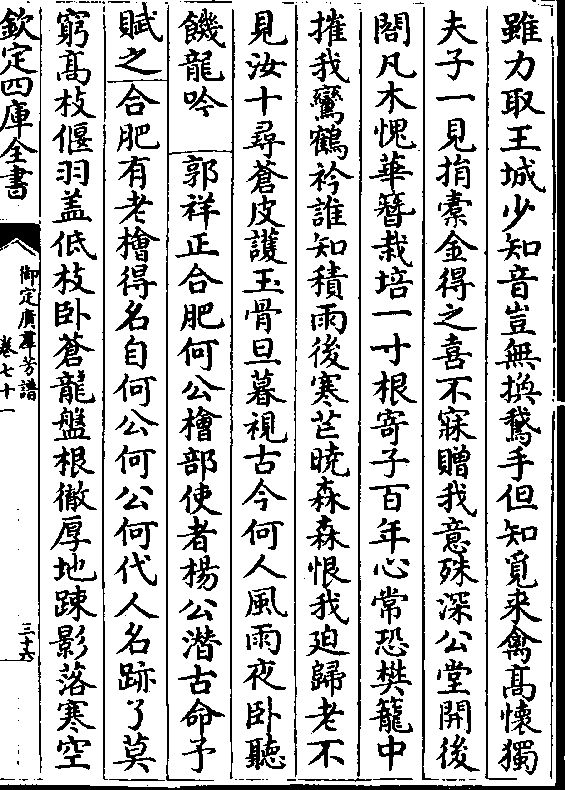 雖力取王城少知音豈無換鵞手但知覓来禽髙懷獨
夫子一見捐橐金得之喜不寐贈我意殊深公堂開後
閤凡木愧華簪栽培一寸根寄子百年心常恐樊籠中
摧我鸞鶴衿誰知積雨後寒芒曉森森恨我廹歸老不
見汝十尋蒼皮護玉骨旦暮視古今何人風雨夜卧聽
饑龍吟　郭祥正合肥何公檜部使者楊公潛古命予
賦之合肥有老檜得名自何公何公何代人名跡了莫
窮髙枝偃羽盖低枝卧蒼龍盤根徹厚地踈影落寒空
欽定四庫全書
御定廣羣芳譜
卷七十一
三十六